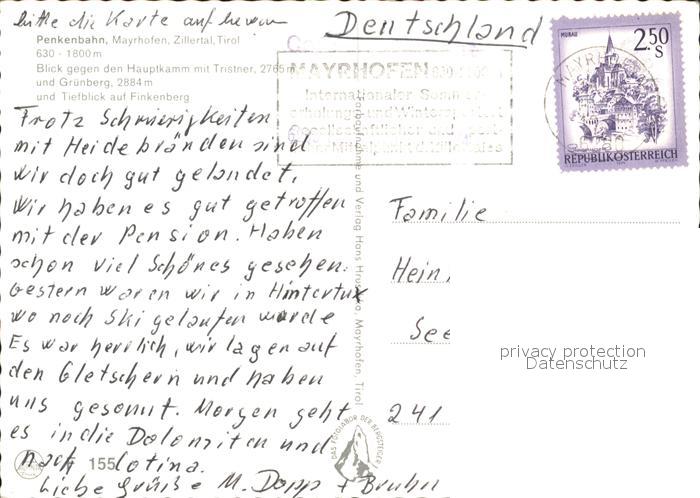 bitte die Karte aufheben
Deutschland
Penkenbahn, Mayrhofen, Zillertal, Tirol
630 - 1800 m
Blick gegen den Hauptkamm mit Tristner, 2765 m,
und Grünberg, 2884 m
und Tiefblick auf Finkenberg
MAYRHOFEN
Internationaler
MURAU
2.50
S
REPUBLIK ÖSTERREICH
Trotz Schwierigkeiten
mit Heidebränden sind
wir doch gut gelandet.
Wir haben es gut getroffen
mit der Pension. Haben
schon viel Schönes gesehen.
Gestern waren wir in Hintertux
wo noch Ski gelaufen wurde
Es war herrlich, wir lagen auf
den Gletschern und haben
uns gesonnt. Morgen geht
es in die Dolomiten und
nach
155
Liebe Grüße M. Dopp + Bruhn
und Verlag Hans Mayrhofen, Tirol
DAS FOTOLABOR DER BERGSTEIGER
Familie
Hein
See
241
privacy protection
Datenschutz